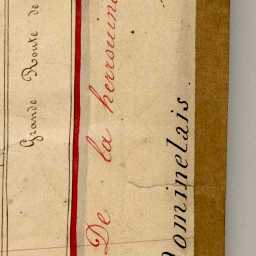 Grande Route de
De la herroune
Dominelais